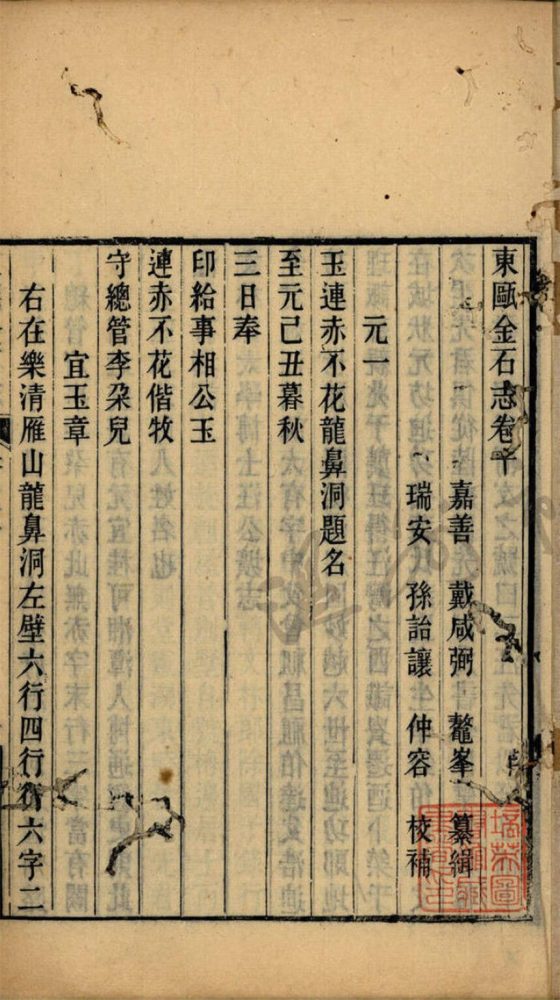 東甌金石志卷十
嘉善 戴咸弼 鼇峯 纂緝
瑞安 孫詒讓 仲容 校補
元一
玉連赤不花龍鼻洞題名
至元己丑暮秋
三日奉
印給事相公玉
連赤不花偕牧
守總管李朶兒
宜玉章
右在樂清雁山龍鼻洞左壁六行四行行六字二